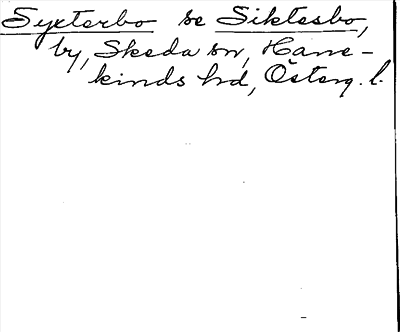 Syxterbo se Siktesbo,
by, Skeda sn, Hane-
kinds hd, Österg. l.